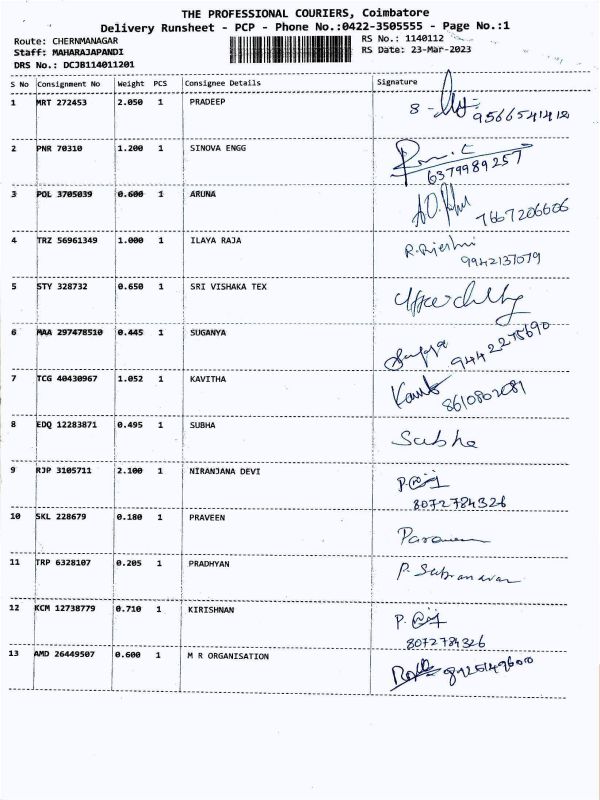 THE PROFESSIONAL COURIERS, Coimbatore
Delivery Runsheet - PCP - Phone No.:0422-3505555 - Page No.:1
Route: CHERNMANAGAR RS No.: 1140112
Staff: MAHARAJAPANDI RS Date: 23-Mar-2023
DRS No.: DCJB114011201
S No Consignment No Weight PCS Consignee Details Signature
1 MRT 272453 2.050 1 PRADEEP
9566541412
2 PNR 70310 1.200 1 SINOVA ENGG
6379989257
3 POL 3705039 0.600 1 ARUNA
7667206606
4 TRZ 56961349 1.000 1 ILAYA RAJA
9942137079
5 STY 328732 0.650 1 SRI VISHAKA TEX
6 MAA 297478510 0.445 1 SUGANYA
9442275690
7 TCG 40430967 1.052 1 KAVITHA
8610802081
8 EDQ 12283871 0.495 1 SUBHA Subha
9 RJP 3105711 2.100 1 NIRANJANA DEVI
8072784326
10 SKL 228679 0.180 1 PRAVEEN
11 TRP 6328107 0.205 1 PRADHYAN
12 KCM 12738779 0.710 1 KIRISHNAN
8072784326
13 AMD 26449507 0.600 1 M R ORGANISATION